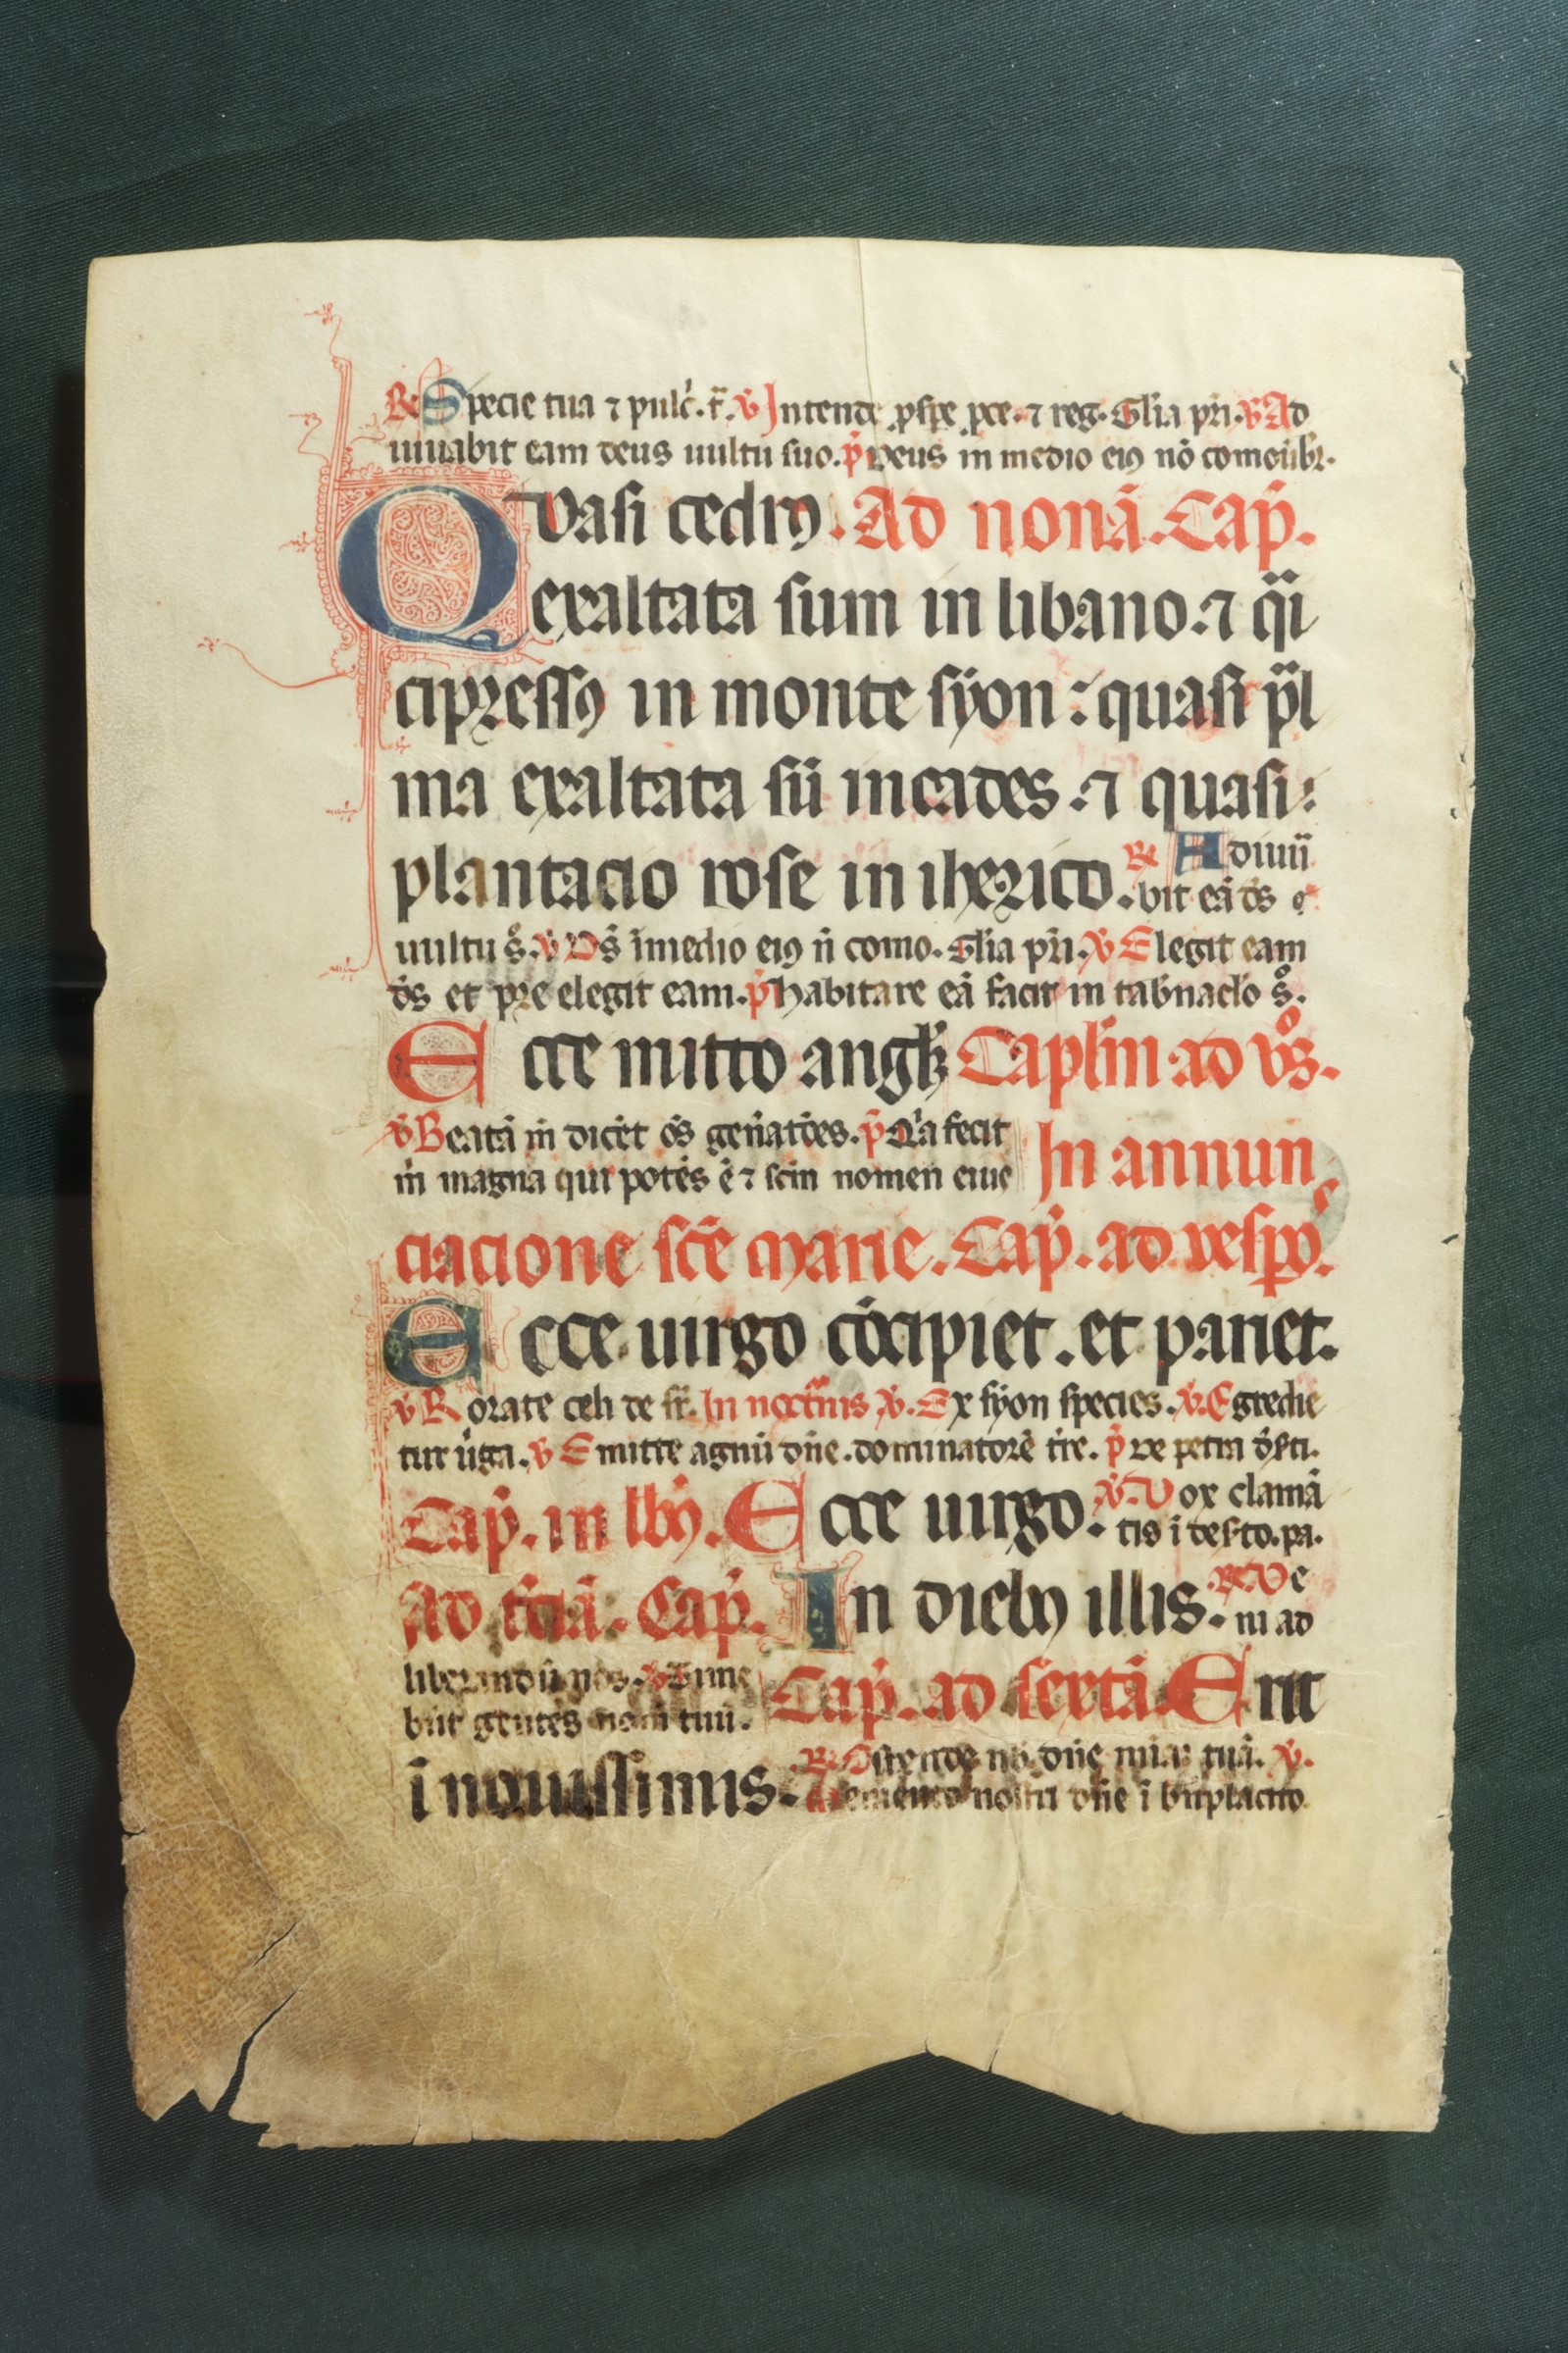 ℟ Specie tua ⁊ pulc̉. r̄. ℣ Intende ꝓspe ꝓce. ⁊ reg. Gl̄ia pr̄i. ℣ Ad
iuuabit eam deus uultu suo. p̉ Deus in medio eiꝯ nō comouebr̄.
Qvasi cedrꝯ. Ad nonā. Cap̉.
exaltata sum in libano. ⁊ q̈i
cipressꝯ in monte sẏon : quasi p̈l
ma exaltata sū in cades. ⁊ quasi
plantacio rose in iherico. ℟ Adiuu̎
bit eā d̄s
uultu s̊. ℣ D̄s ī medio eiꝯ n̄ como. Gl̄ia pr̄i. ℣ Elegit eam
d̄s et pre elegit eam. p̉ habitare eā facit in tab̉nac̄lo s̊.
Ecce mitto anglꝫ Capl̄m ad v̊s.
℣ Beatā m̄ dicēt ōs gen̉atōes. p̉ Q̉a fecit
m̉ magna qui potēs ē ⁊ sc̄m nomen eius
In annun
ciacione sc̄e marie. Cap̉. ad vesp̉
Ecce uirgo cōcipiet. et pariet.
℣ Rorate celi de sr̄. In noct̉nis ℣. Ex sẏon species. ℣. Egredie
tur u̍ga. ℣ Emitte agnū dn̄e. dominatorē t̉re. p̉ De petra d̉s̉ti.
Cap̉. in lbꝯ. Ecce uirgo. ℣. Vox clamā
tis ī des̉to. pa.
Ad t̉ciā. Cap̉. In diebꝯ illis. ℟ Ve
ni ad
liberandū nos. ℣ Time
būt gentes nom̄ tuū.
Cap̉. ad sextā. Erit
ī nouissimis. ℟ Ostende nb̄ dn̄e mīaꝫ tuā. ℣.
Memento nostri dn̄e ī bn̄placito